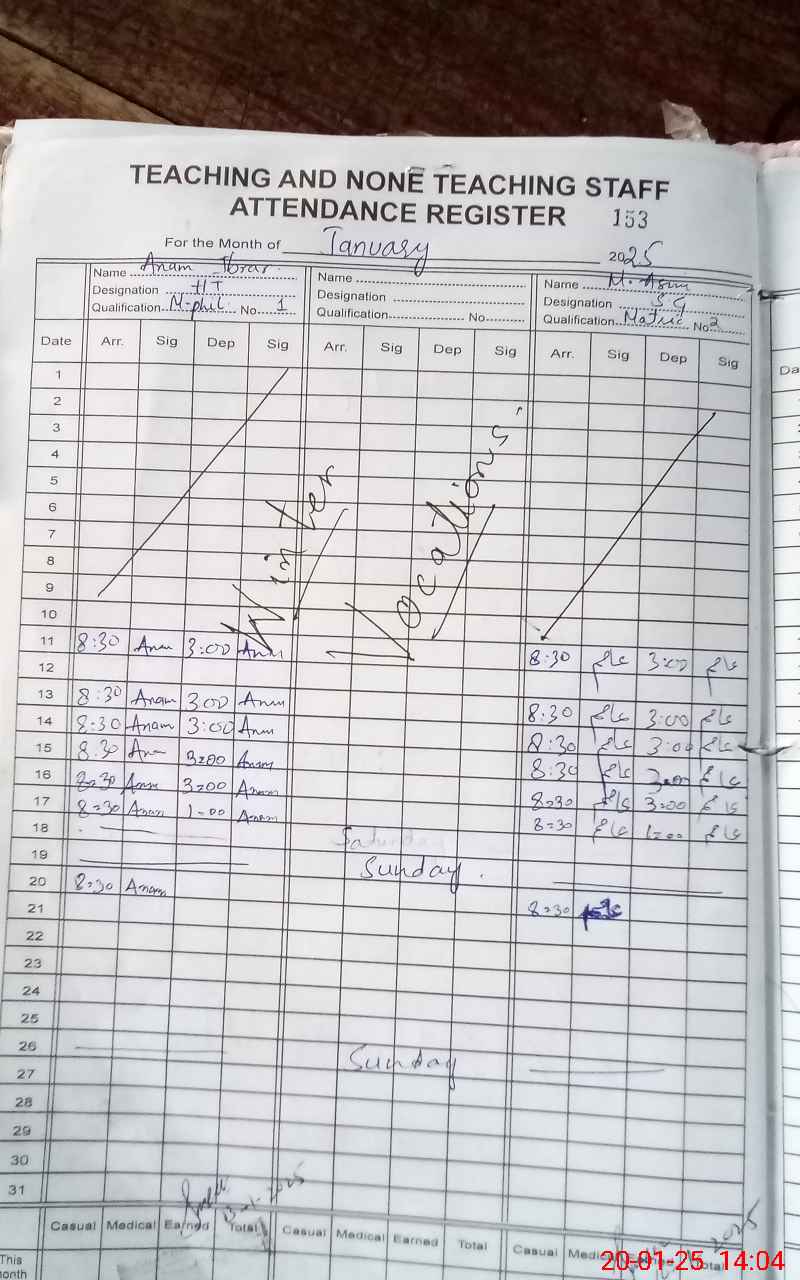 TEACHING AND NONE TEACHING STAFF
ATTENDANCE REGISTER 153
For the Month of January 2025
Name Anam Ibrar Name Name M. Asim
Designation HT Designation Designation S G
Qualification M-phil No 1 Qualification No Qualification Matric No 2
Date Arr. Sig Dep Sig Arr. Sig Dep Sig Arr. Sig Dep Sig
1
2
3
4
5
6
7
8
9
10
Winter Vocations
11 8:30 Anm 3:00 Anm 8:30 3:00
12
13 8:30 Anam 3:00 Anm 8:30 3:00
14 8:30 Anam 3:00 Anm 8:30 3:00
15 8:30 Ana 3:00 Anam 8:30 3:00
16 8:30 Anm 3:00 Anam 8:30 3:00
17 8:30 Anam 1:00 Anam 8:30 1:00
18 Saturday
19 Sunday.
20 8:30 Anam 8:30
21
22
23
24
25
26 Sunday
27
28
29
30
31
13-1-2025
Casual Medical Earned Total Casual Medical Earned Total Casual Medical Earned Total
This
month
Da
20-01-25 14:04